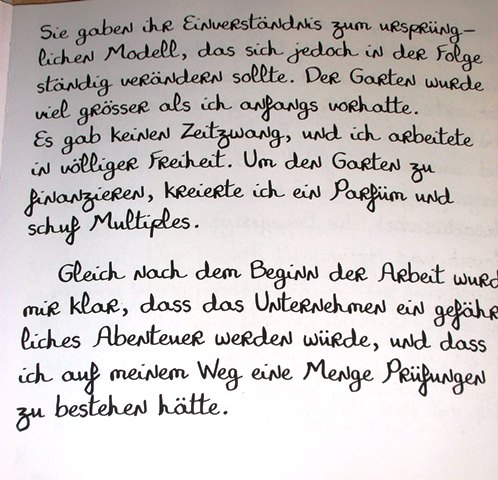 Sie gaben ihr Einverständnis zum ursprüng-
lichen Modell, das sich jedoch in der Folge
ständig verändern sollte. Der Garten wurde
viel grösser als ich anfangs vorhatte.
Es gab keinen Zeitzwang, und ich arbeitete
in völliger Freiheit. Um den Garten zu
finanzieren, kreierte ich ein Parfüm und
schuf Multiples.
Gleich nach dem Beginn der Arbeit wurd
mir klar, dass das Unternehmen ein gefähr
liches Abenteuer werden würde, und dass
ich auf meinem Weg eine Menge Prüfungen
zu bestehen hätte.